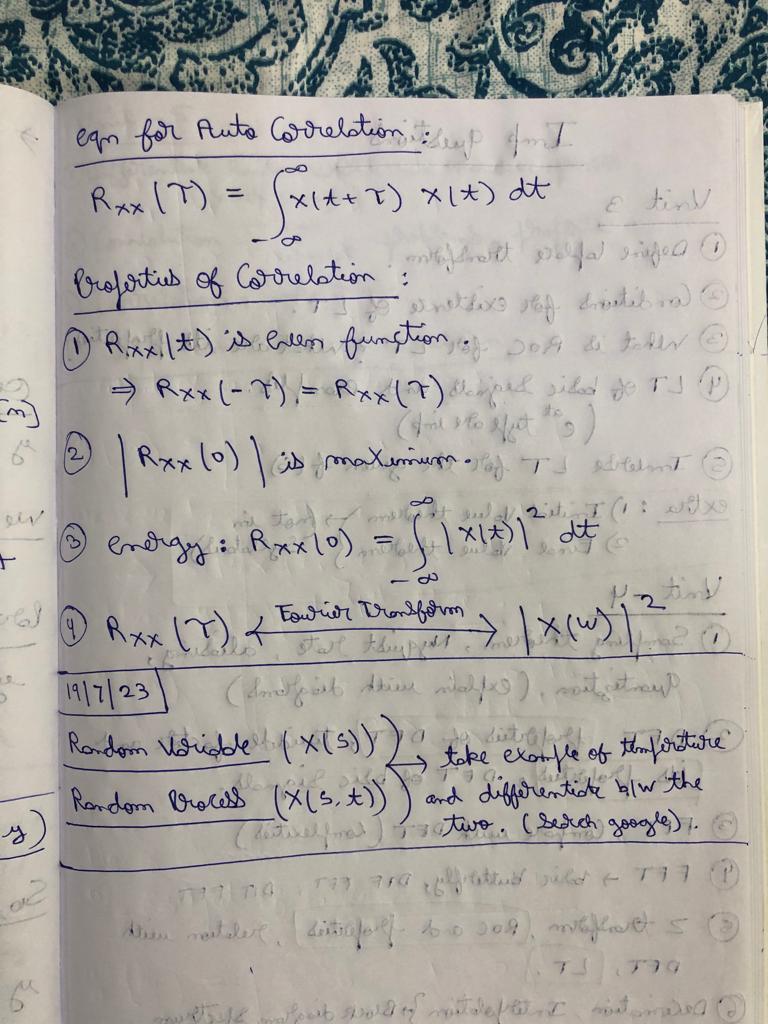 eqn for Auto Correlation :
Rxx(τ) = ∫_{-∞}^{∞} x(t+τ) x(t) dt
Properties of Correlation :
① Rxx(t) is Even function.
⇒ Rxx(-τ) = Rxx(τ)
② |Rxx(0)| is maximum.
③ energy : Rxx(0) = ∫_{-∞}^{∞} |x(t)|² dt
④ Rxx(τ) <—Fourier Transform—> |X(w)|²
19/7/23
Random Variable (X(s)) → take example of temperature
Random Process (X(s,t)) and differentiate b/w the
two. (Serch google).